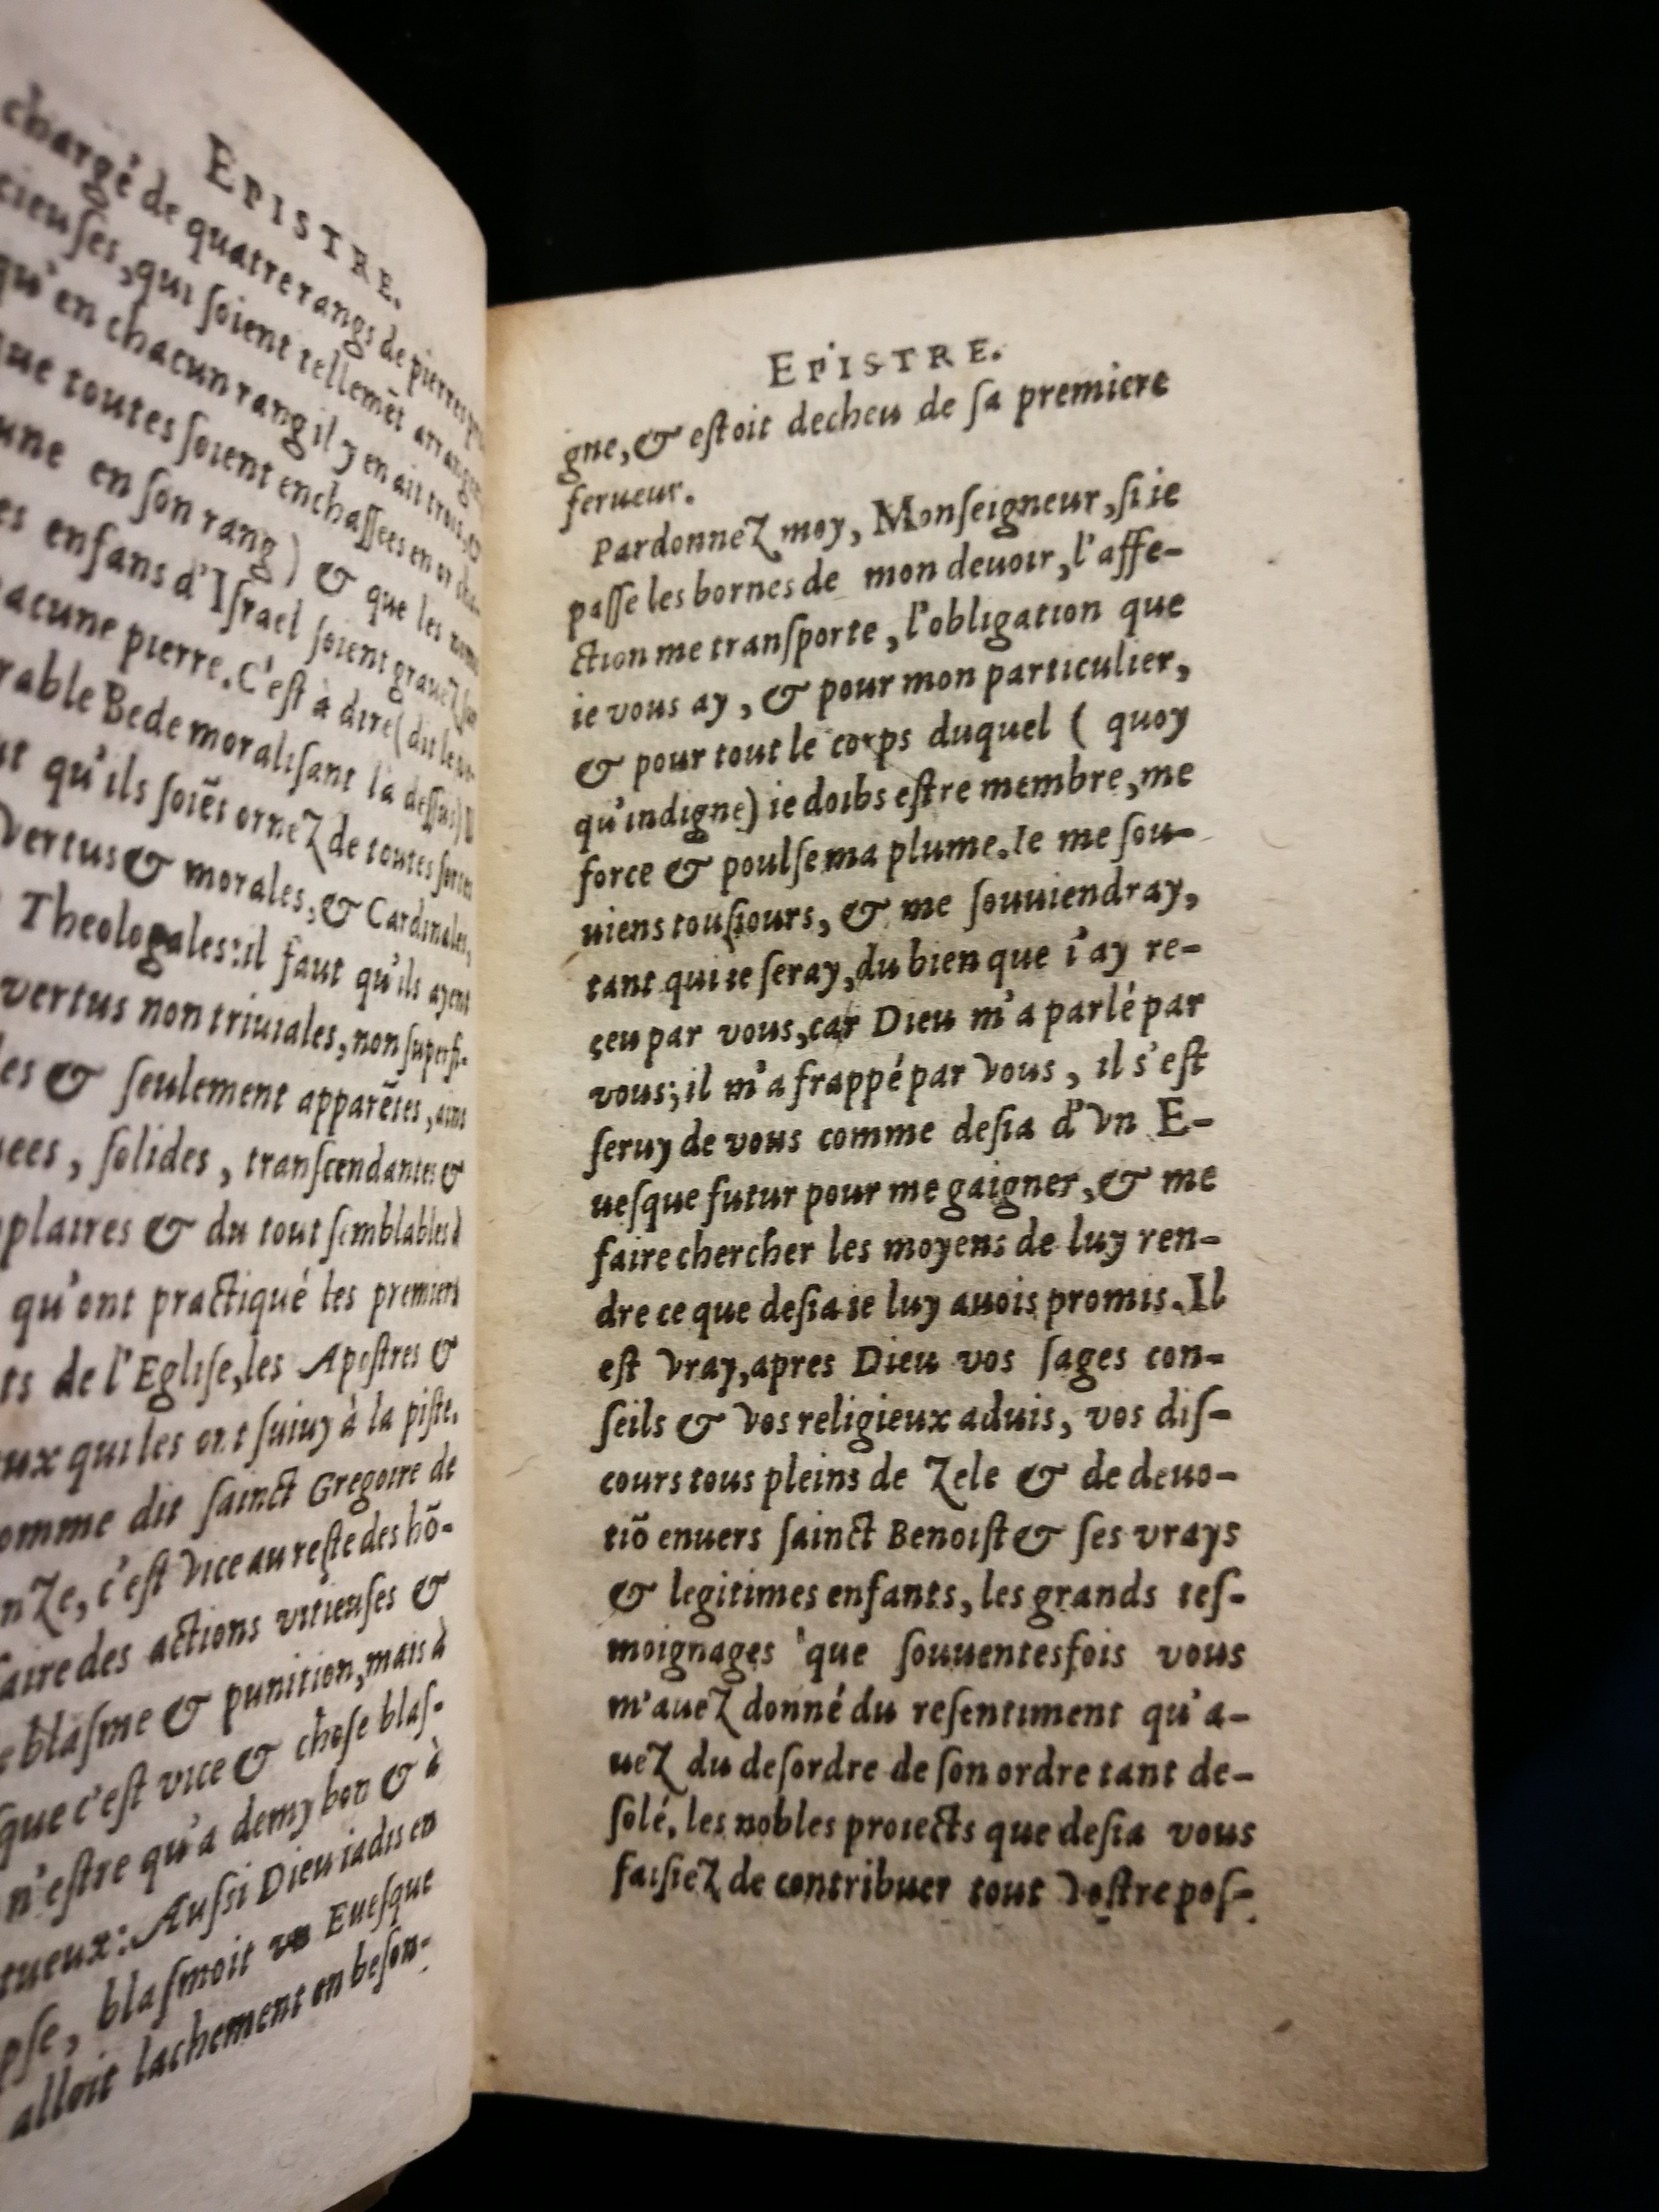 EPISTRE.
chargé de quatre rangs de pierres
cieuſes, qui ſoient tellemēt arrangees
qu'en chacun rang il y en ait trois, &
que toutes ſoient enchaſſees en or cha-
une en ſon rang) & que les noms
es enfans d'Iſrael ſoient grauez ſur
acune pierre. C'eſt à dire (dit le
rable Bede moraliſant la deſſus)
ut qu'ils ſoiēt ornez de toutes ſortes
vertus & morales, & Cardinales,
Theologales: il faut qu'ils ayent
vertus non triuiales, non ſuperfi-
les & ſeulement apparētes, ains
uees, ſolides, tranſcendantes &
plaires & du tout ſemblables à
qu'ont practiqué les premiers
ts de l'Egliſe, les Apoſtres &
ux qui les ont ſuiuy à la piſte.
omme dit ſainct Gregoire de
nze, c'eſt vice au reſte des hō-
faire des actions vitieuſes &
e blaſme & punition, mais à
ſque c'eſt vice & choſe blaſ-
n'eſtre qu'a demy bon & à
tueux: Auſſi Dieu iadis en
pſe, blaſmoit vn Eueſque
alloit laſchement en beſon-
EPISTRE.
gne, & eſtoit decheu de ſa premiere
ferueur.
Pardonnez moy, Monſeigneur, ſi ie
paſſe les bornes de mon deuoir, l'affe-
ction me tranſporte, l'obligation que
ie vous ay, & pour mon particulier,
& pour tout le corps duquel ( quoy
qu'indigne) ie doibs eſtre membre, me
force & poulſe ma plume. Ie me ſou-
uiens touſiours, & me ſouuiendray,
tant qui ie ſeray, du bien que i'ay re-
çeu par vous, car Dieu m'a parlé par
vous; il m'a frappé par vous, il s'eſt
ſeruy de vous comme deſia d'vn E-
ueſque futur pour me gaigner, & me
faire chercher les moyens de luy ren-
dre ce que deſia ie luy auois promis. Il
eſt vray, apres Dieu vos ſages con-
ſeils & vos religieux aduis, vos diſ-
cours tous pleins de zele & de deuo-
tiō enuers ſainct Benoiſt & ſes vrays
& legitimes enfants, les grands teſ-
moignages que ſouuentesfois vous
m'auez donné du reſentiment qu'a-
uez du deſordre de ſon ordre tant de-
ſolé, les nobles proiects que deſia vous
faiſiez de contribuer tout voſtre poſ-